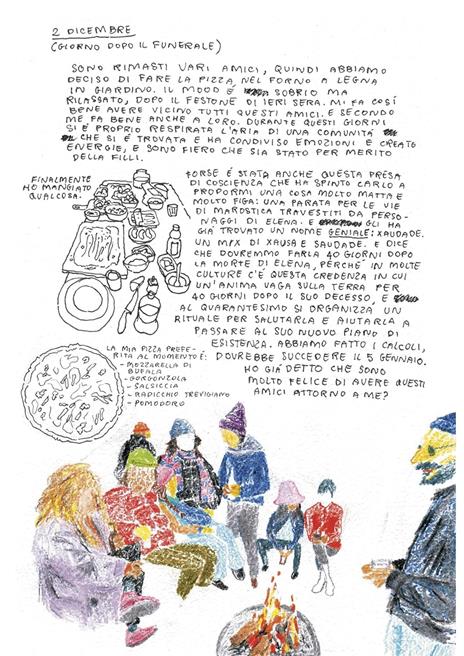 2 DICEMBRE
(GIORNO DOPO IL FUNERALE)
SONO RIMASTI VARI AMICI, QUINDI ABBIAMO
DECISO DI FARE LA PIZZA, NEL FORNO A LEGNA
IN GIARDINO. IL MOOD È SOBRIO MA
RILASSATO, DOPO IL FESTONE DI IERI SERA. MI FA COSÍ
BENE AVERE VICINO TUTTI QUESTI AMICI. E SECONDO
ME FA BENE ANCHE A LORO. DURANTE QUESTI GIORNI
SI È PROPRIO RESPIRATA L'ARIA DI UNA COMUNITÁ
CHE SI È TROVATA E HA CONDIVISO EMOZIONI E CREATO
ENERGIE, E SONO FIERO CHE SIA STATO PER MERITO
DELLA FILLI.
FINALMENTE
HO MANGIATO
QUALCOSA.
FORSE È STATA ANCHE QUESTA PRESA
DI COSCIENZA CHE HA SPINTO CARLO A
PROPORMI UNA COSA MOLTO MATTA E
MOLTO FIGA: UNA PARATA PER LE VIE
DI MAROSTICA TRAVESTITI DA PERSO-
NAGGI DI ELENA. E GLI HA
GIÁ TROVATO UN NOME GENIALE: XAUDADE.
UN MIX DI XAUSA E SAUDADE. E DICE
CHE DOVREMMO FARLA 40 GIORNI DOPO
LA MORTE DI ELENA, PERCHÉ IN MOLTE
CULTURE C'È QUESTA CREDENZA IN CUI
UN'ANIMA VAGA SULLA TERRA PER
40 GIORNI DOPO IL SUO DECESSO, E
AL QUARANTESIMO SI ORGANIZZA UN
RITUALE PER SALUTARLA E AIUTARLA A
PASSARE AL SUO NUOVO PIANO DI
ESISTENZA. ABBIAMO FATTO I CALCOLI,
DOVREBBE SUCCEDERE IL 5 GENNAIO.
HO GIÁ DETTO CHE SONO
MOLTO FELICE DI AVERE QUESTI
AMICI ATTORNO A ME?
LA MIA PIZZA PREFE-
RITA AL MOMENTO È:
- MOZZARELLA DI
BUFALA
- GORGONZOLA
- SALSICCIA
- RADICCHIO TREVIGIANO
- POMODORO